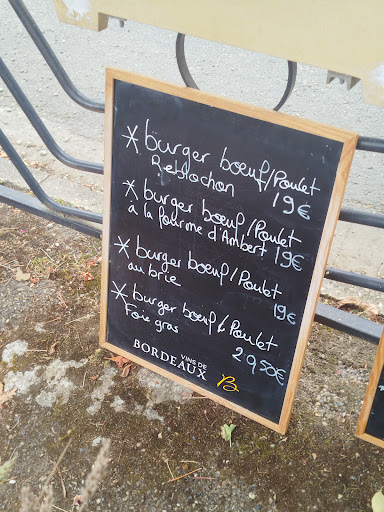 * burger boeuf/Poulet
Reblochon 19€
* burger boeuf/Poulet
à la fourme d'Ambert 19€
* burger boeuf/Poulet
au brie 19€
* burger boeuf/Poulet
Foie gras 29,50€
VINS DE
BORDEAUX